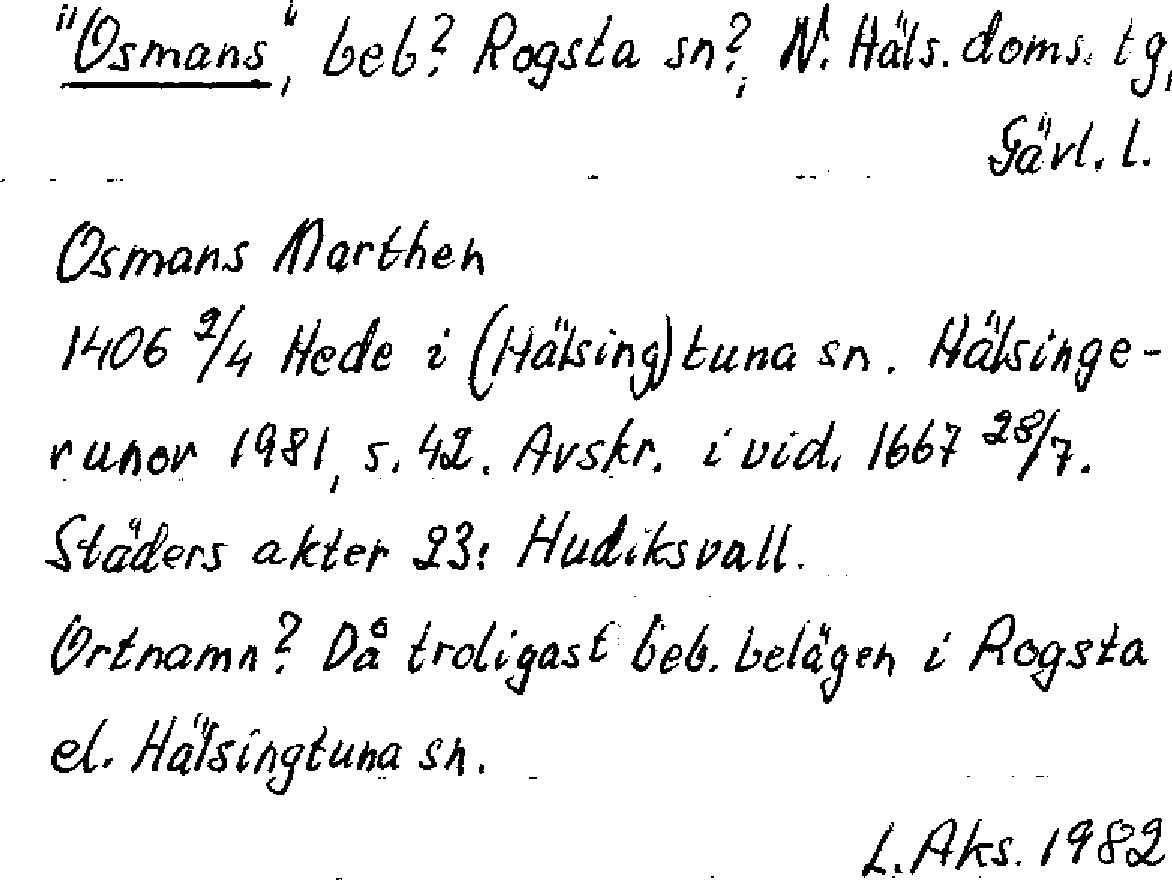 "Osmans", beb? Rogsta sn?, N. Häls. doms. tg,
Gävl. l.
Osmans Marthen
1406 2/4 Hede i (Hälsing)tuna sn. Hälsinge-
runor 1981, s. 42. Avskr. i vid. 1667 28/7.
Städers akter 23: Hudiksvall.
Ortnamn? Då troligast beb. belägen i Rogsta
el. Hälsingtuna sn.
L. Aks. 1982